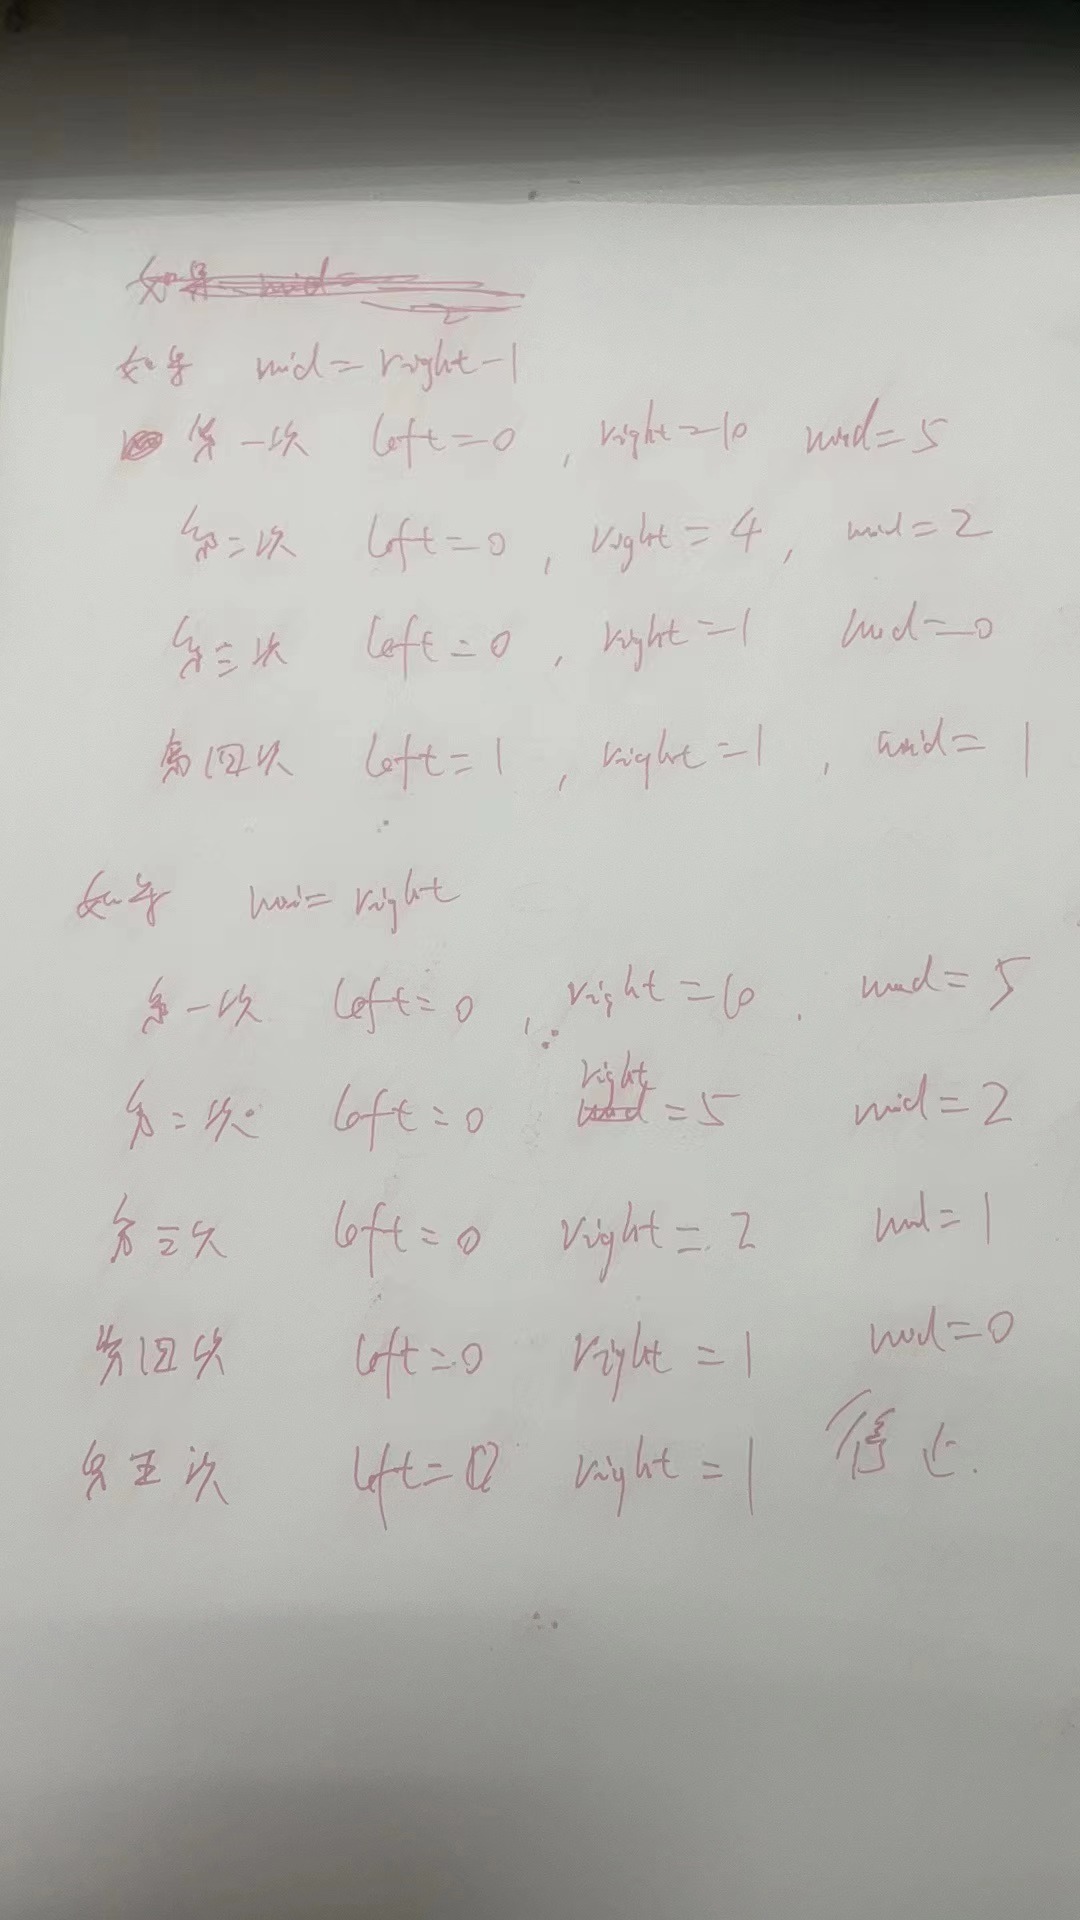 如果 mid=
2
如果 mid = right -1
第一次 left=0 , right=10 mid=5
第二次 left=0 , right=4 , mid=2
第三次 left=0 , right=1 mid=0
第四次 left=1 , right=1 , mid=1
如果 mi= right
第一次 left=0 , right=10 . mid=5
第二次 left=0 right=5 mid=2
第三次 left=0 right=2 mid=1
第四次 left=0 right=1 mid=0
第五次 left=0 right=1 停止.